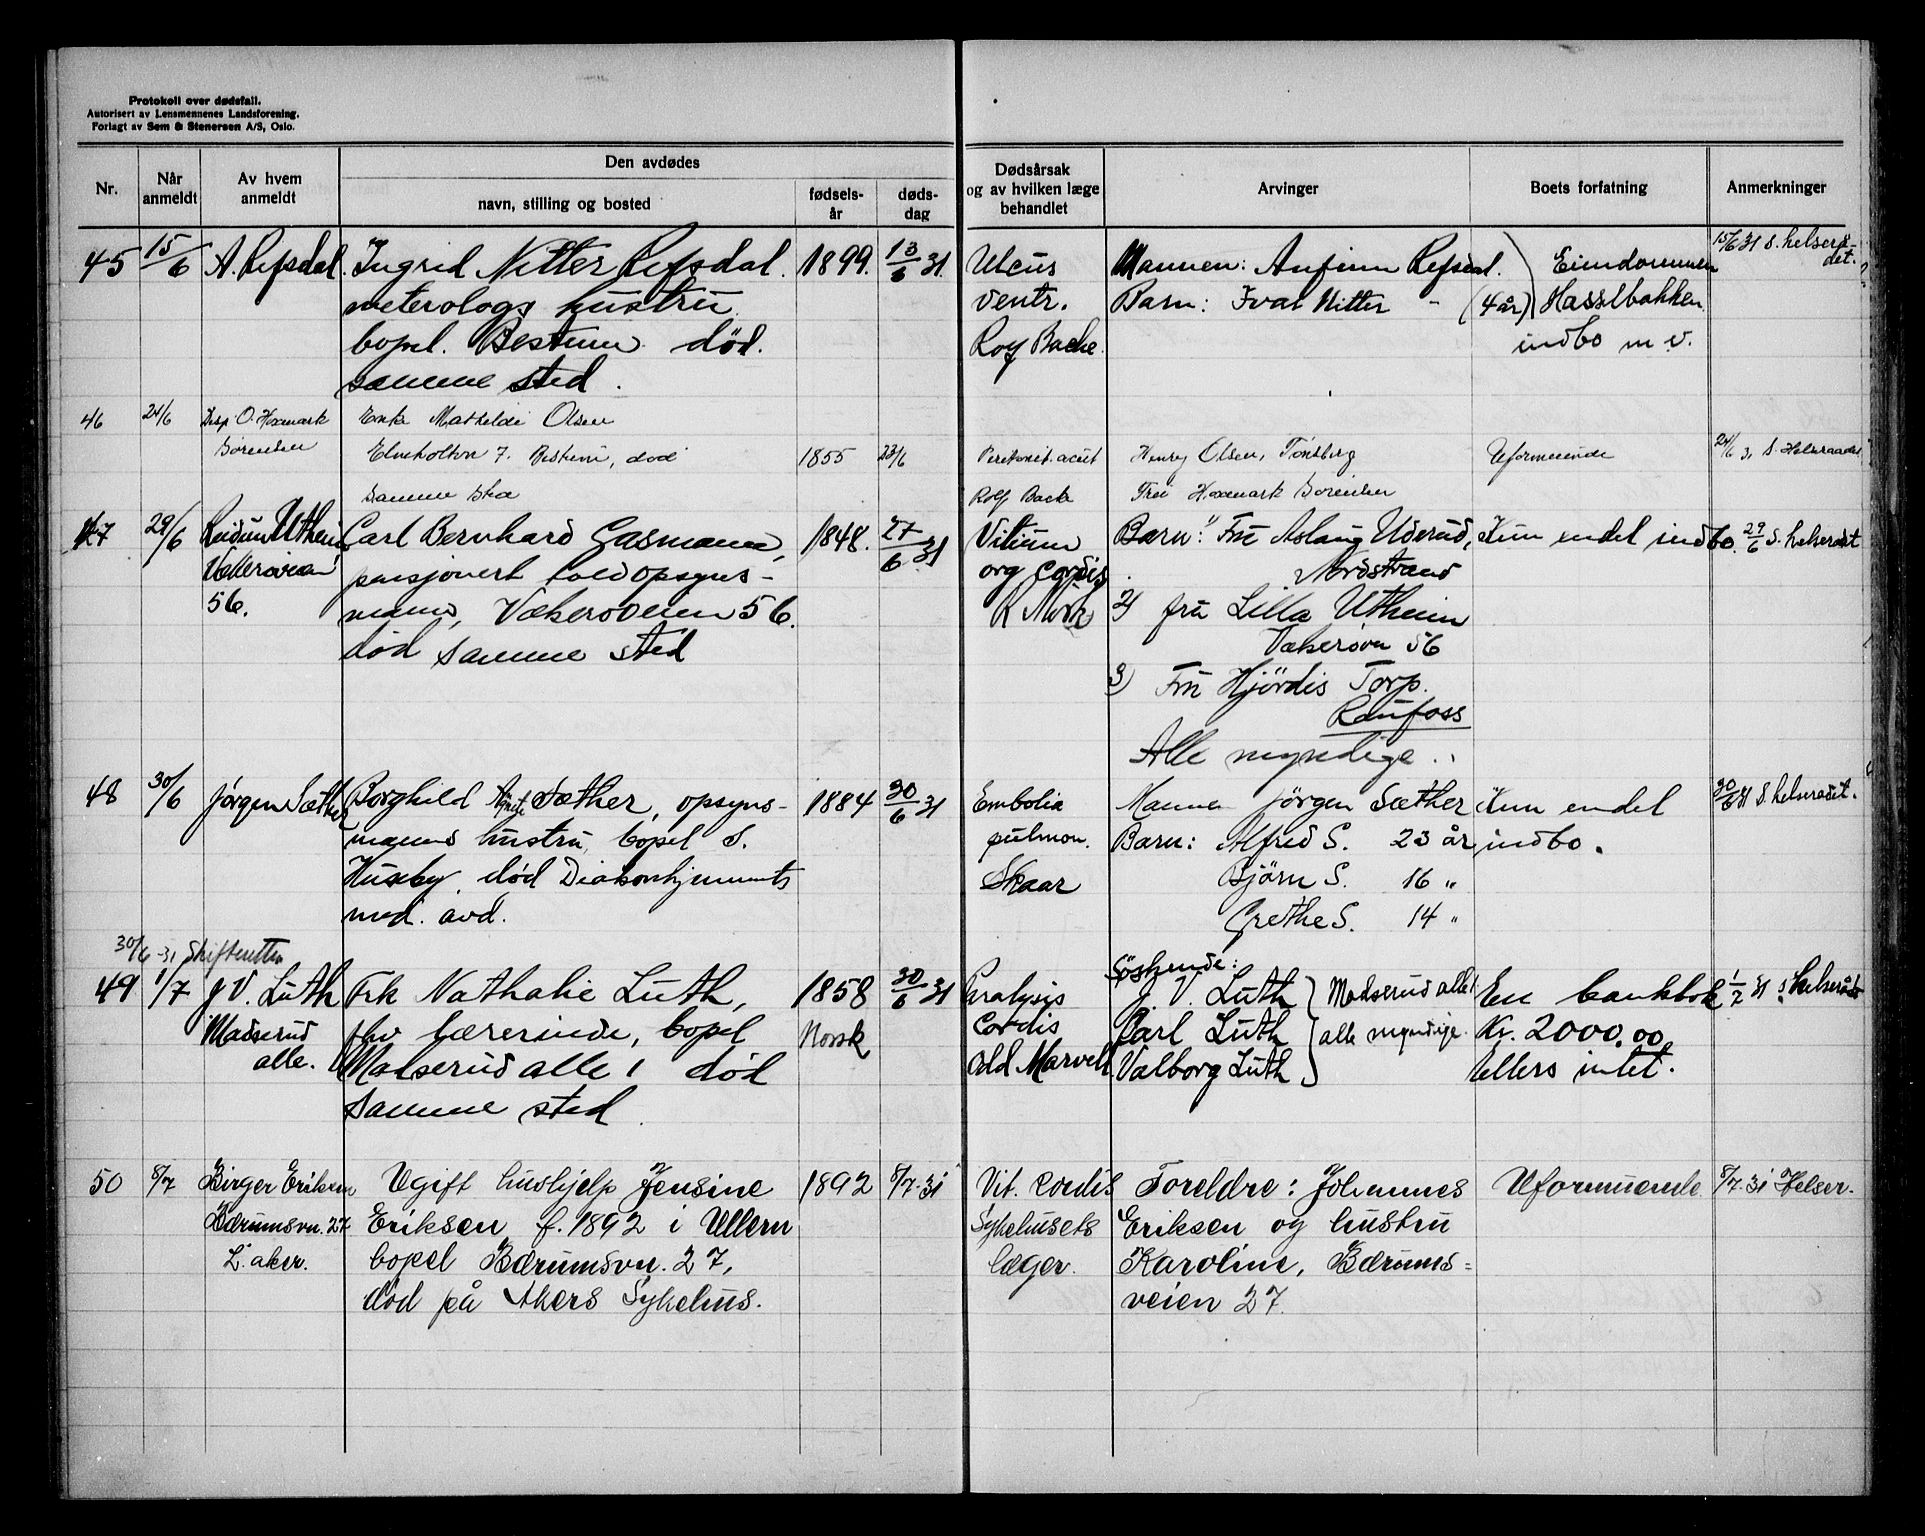 Protokoll over dødsfall.
Autorisert av Lensmennenes Landsforening.
Forlagt av Sem & Stenersen A/S, Oslo.
Nr.
Når anmeldt
Av hvem anmeldt
Den avdødes
navn, stilling og bosted
fødsels-år
døds-dag
Dødsårsak og av hvilken læge behandlet
Arvinger
Boets forfatning
Anmerkninger
45 15/6 A. Refsdal. Ingrid Nitter Refsdal. 1899. 13/6 31. Ulcus Mannen: Anfinn Refsdal. Eiendommen 15/6 31 S. helserå-
meterologs hustru ventr. Barn: Ivar Nitter " (4 år) Hasselbakken det.
bopel. Bestum død. Rolf Backe. indbo m v.
samme sted.
46 24/6 Disp O. Hoxmark Enke Mathilde Olsen
Sørensen 7. Bestum, død 1855 23/6 Peritonit. acut Henry Olsen, Tønsberg Uformuende 24/6 31 S. Helseraadet
samme sted Rolf Back Fru Hoxmark Sorensen
47 29/6 Reidun Utheim Carl Bernhard Gasmann, 1848. 27/6 31 Vitium Barn: 1) Fru Aslaug Uderud, Kun endel indbo. 29/6 S. helserådet
Vækerøveien pensjonert toldopsyns- org cordis Nordstrand
56. mann, Vækerøveien 56. R Mork 2) fru Lilla Utheim
død samme sted Vækerøvn 56
3) Fru Hjördis Torp.
Raufoss
Alle myndige.
48 30/6 Jørgen Sæther Borghild Agnete Sæther, opsyns- 1884 30/6 31 Embolia Mannen Jörgen Sæther Kun endel 30/6 31 S. helserådet.
manns hustru, bopel S. pulmon. Barn: Alfred S. 23 år indbo.
Huseby, død Diakonhjemmets Skaar Björn S. 16 "
med. avd. Grethe S. 14 "
30/6-31 Skifteretten
49 1/7 J V. Luth Frk Nathalie Luth, 1858 30/6 31 Paralysis Søskende: J. V. Luth Madserud allé 1 En bankbok 1/7 31 S helseråd
Madserud fhv lærerinde, bopel Norsk Cordis Carl Luth alle myndige. Kr. 2000,00.
alle. Madserud alle 1 død Odd Marvell. Valborg Luth Ellers intet.
samme sted.
50 8/7 Birger Eriksen Ugift hushjelp Jensine 1892 8/7-31 Vit. cordis Foreldre: Johannes Uformuende 8/7-31 Helser.
Bærumsvn. 27 Eriksen f. 1892 i Ullern Sykehusets Eriksen og hustru
L. aker. bopel Bærumsvn. 27, læger. Karoline, Bærums-
død på Akers Sykehus. veien 27.